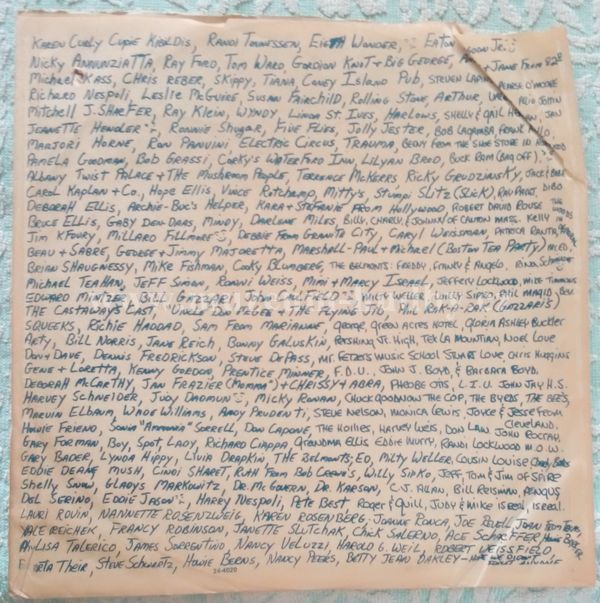 KAREN CURLY CUPIE KIBILDIS, RANDI TONNESSEN, EIGTH WONDER, EATON MOON JR.
NICKY ANNUNZIATTA, RAY FORD, TOM WARD GORDION KNOT + BIG GEORGE, + JANE FROM 82E
MICHAEL KASS, CHRIS REBER, SKIPPY, TIANA, CONEY ISLAND PUB, STEVEN
RICHARD NESPOLI, LESLIE McGUIRE, SUSAN FAIRCHILD, ROLLING STONE, ARTHUR,
MITCHELL J. SHAFFER, RAY KLEIN, WYNDY, LINDA ST. IVES, HARLOWS, SHELLY + GAIL HORAN, JAN
JEANETTE HENDLER, RONNIE SHUGAR, FIVE FLIES, JOLLY JESTER, BOB LAGAMBA
MARJORI HORNE, RON PANVINI, ELECTRIC CIRCUS, TRAUMA, FROM THE SHOE STORE IN
PAMELA GOODMAN, BOB GRASSI, CORKY'S WATERFORD INN, LILYAN BROD, BUCK RAM (BAQ OFF),
ALBANY TWIST PALACE + THE MUSHROOM PEOPLE, TERRENCE McKERRS, RICKY GRUDZINSKY, JACK
CAROL KAPLAN + CO., HOPE ELLIS, VINCE ROTCHAMP, MITTY'S, STUMPI SLITZ (SLICK), RAY PAGE, DIBO
DEBORAH ELLIS, ARCHIE-BUC'S HELPER, KARA + STEFANIE FROM HOLLYWOOD, ROBERT DAVID ROUSE, THE WOODS
BRUCE ELLIS, GABY DEN DAAS, MINDY, DARLENE MILES, BILLY, CHARLY + JOHN OF CANTON MASS. KELLY IN
JIM KFOURY, MILLARD FILLMORE, DEBBIE FROM GRANITE CITY, CARYL WEISSMAN, PATRICA PANTA,
BEAU + SABRE, GEORGE + JIMMY MAJORETTA, MARSHALL-PAUL + MICHAEL (BOSTON TEA PARTY)
BRIAN SHAUGNESSY, MIKE FISHMAN, COOKY BLUMBERG, THE BELMONTS: FREDDY, FRANK & ANGELO,
MICHAEL TEAHAN, JEFF SIMON, RONNI WEISS, MIMI + MARCY ISRAEL, JEFFERY LOCKWOOD, MIKE TIMMONS
EDWARD MINTZER, BILL GAZZARI, JOHN CANFIELD, NICKY WELLER, PHIL MAGID,
THE CASTAWAYS LAST, "UNCLE" DON McGEE + THE FLYING JIB, PHIL ROK-A-BAR (GAZZARIS)
SQUEEKS, RICHIE HADDAD, SAM FROM MARIANNE, GEORGE, GREEN ACRES HOTEL, GLORIA ASHLEY BUCKLER
ARTY, BILL NORRIS, JANE REICH, BONNY GALUSKIN, PERSHING JR. HIGH, TEX LA MOUNTAIN, NOEL LOVE
DON + DAVE, DENNIS FREDRICKSON, STEVE DEPASS, MR. GETZER'S MUSIC SCHOOL, STUART LOVE, CHRIS HUGGINS
GENE + LORETTA, KENNY GORDON, PRENTICE MINNER, F.D.U., JOHN J. BOYD, & BARBARA BOYD,
DEBORAH McCARTHY, JAN FRAZIER (MOMMA") + CHRISSY + ABRA, PHOEBE OTIS, L.I.U. JOHN JAY H.S.
HARVEY SCHNEIDER, JUDY DADMUN, MICKY RONAN, CHUCK GOODNOW THE COP, THE BYRDS, THE BEE'S
MARVIN ELBAUM, WADE WILLIAMS, ANDY PRUDENTI, STEVE NELSON, MONICA LEWIS, JOYCE & JESSE FROM CLEVELAND.
HOWIE FRIEND, SONIA "AMMONIA" SORRELL, DON CAPONE, THE HOLLIES, HARVEY WEIS, DON LAW, JOHN ROCRAY,
GARY FORMAN, BOY, SPOT, LADY, RICHARD CIAPPA, GRANDMA ELLIS, EDDIE MURRY, RANDI LOCKWOOD M.O.W.
GARY BADER, LYNDA HIPPY, LIVIA DRAPKIN, THE BELMONTS; ED, MILTY WELLER, COUSIN LOUISE
EDDIE DEANE MUSH, CINDI SHARET, RUTH FROM BOB CREWE'S, WILLY SIPKO, JEFF, TOM & JIM OF SPIRE
SHELLY SNOW, GLADYS MARKOWITZ, DR. McGOVERN, DR. KARSON, C.J. ALLAN, BILL REISMAN, PENQUS
DEL SERINO, EDDIE JASON, HARRY NESPOLI, PETE BEST, ROGER & QUILL, JUDY & MIKE ISREAL ISREAL.
LAURI ROVIN, NANNETTE ROSENZWEIG, KAREN ROSENBERG, JOANNE RONCA, JOE REVELL, JOAN FROM TEXAS,
REICHEK, FRANCY ROBINSON, JANETTE SLUTCHAK, CHICK SALERNO, ACE SCHAEFFER
LISA TALERICO, JAMES SORRENTINO, NANCY VELUZZI, HAROLD G. WEIL, ROBERT WEISSFIELD,
THEIR, STEVE SCHWARTZ, HOWIE BERNS, NANCY PEERS, BETTY JEAN OAKLEY
24-4020